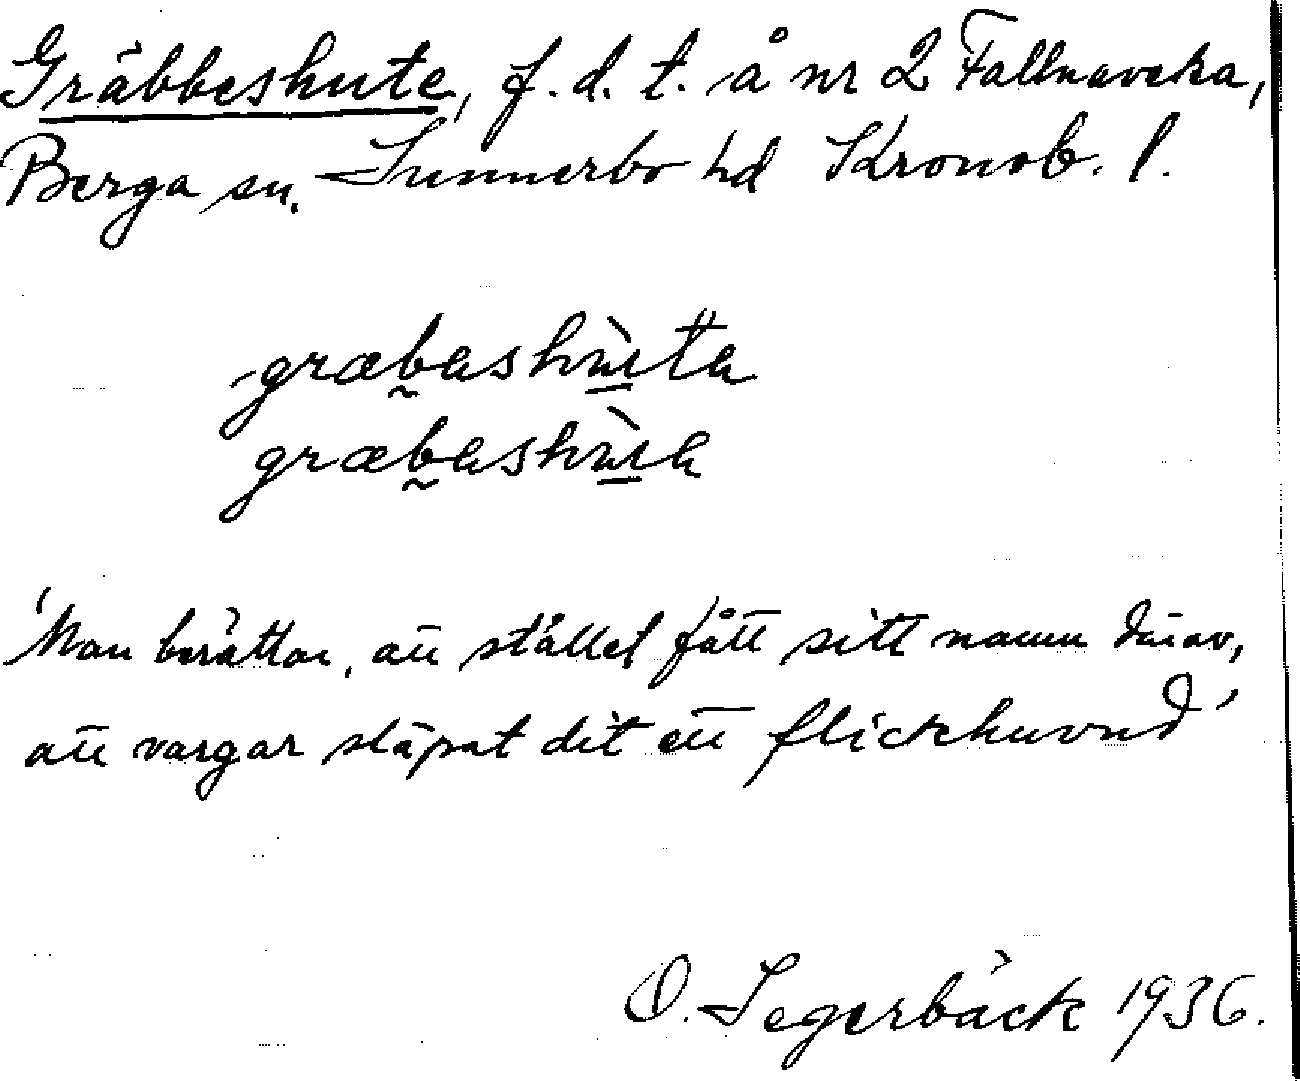 Gräbbeshute, f.d.t. å nr 2 Fallnaveka,
Berga sn. Sunnerbo hd Kronob. l.
græbashùta
græbashùa
'Man berättar, att stället fått sitt namn därav,
att vargar släpat dit ett flickhuvud'
O. Segerbäck 1936.